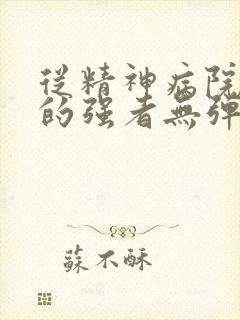 從精神病院
的強者無彈
蘇不酥